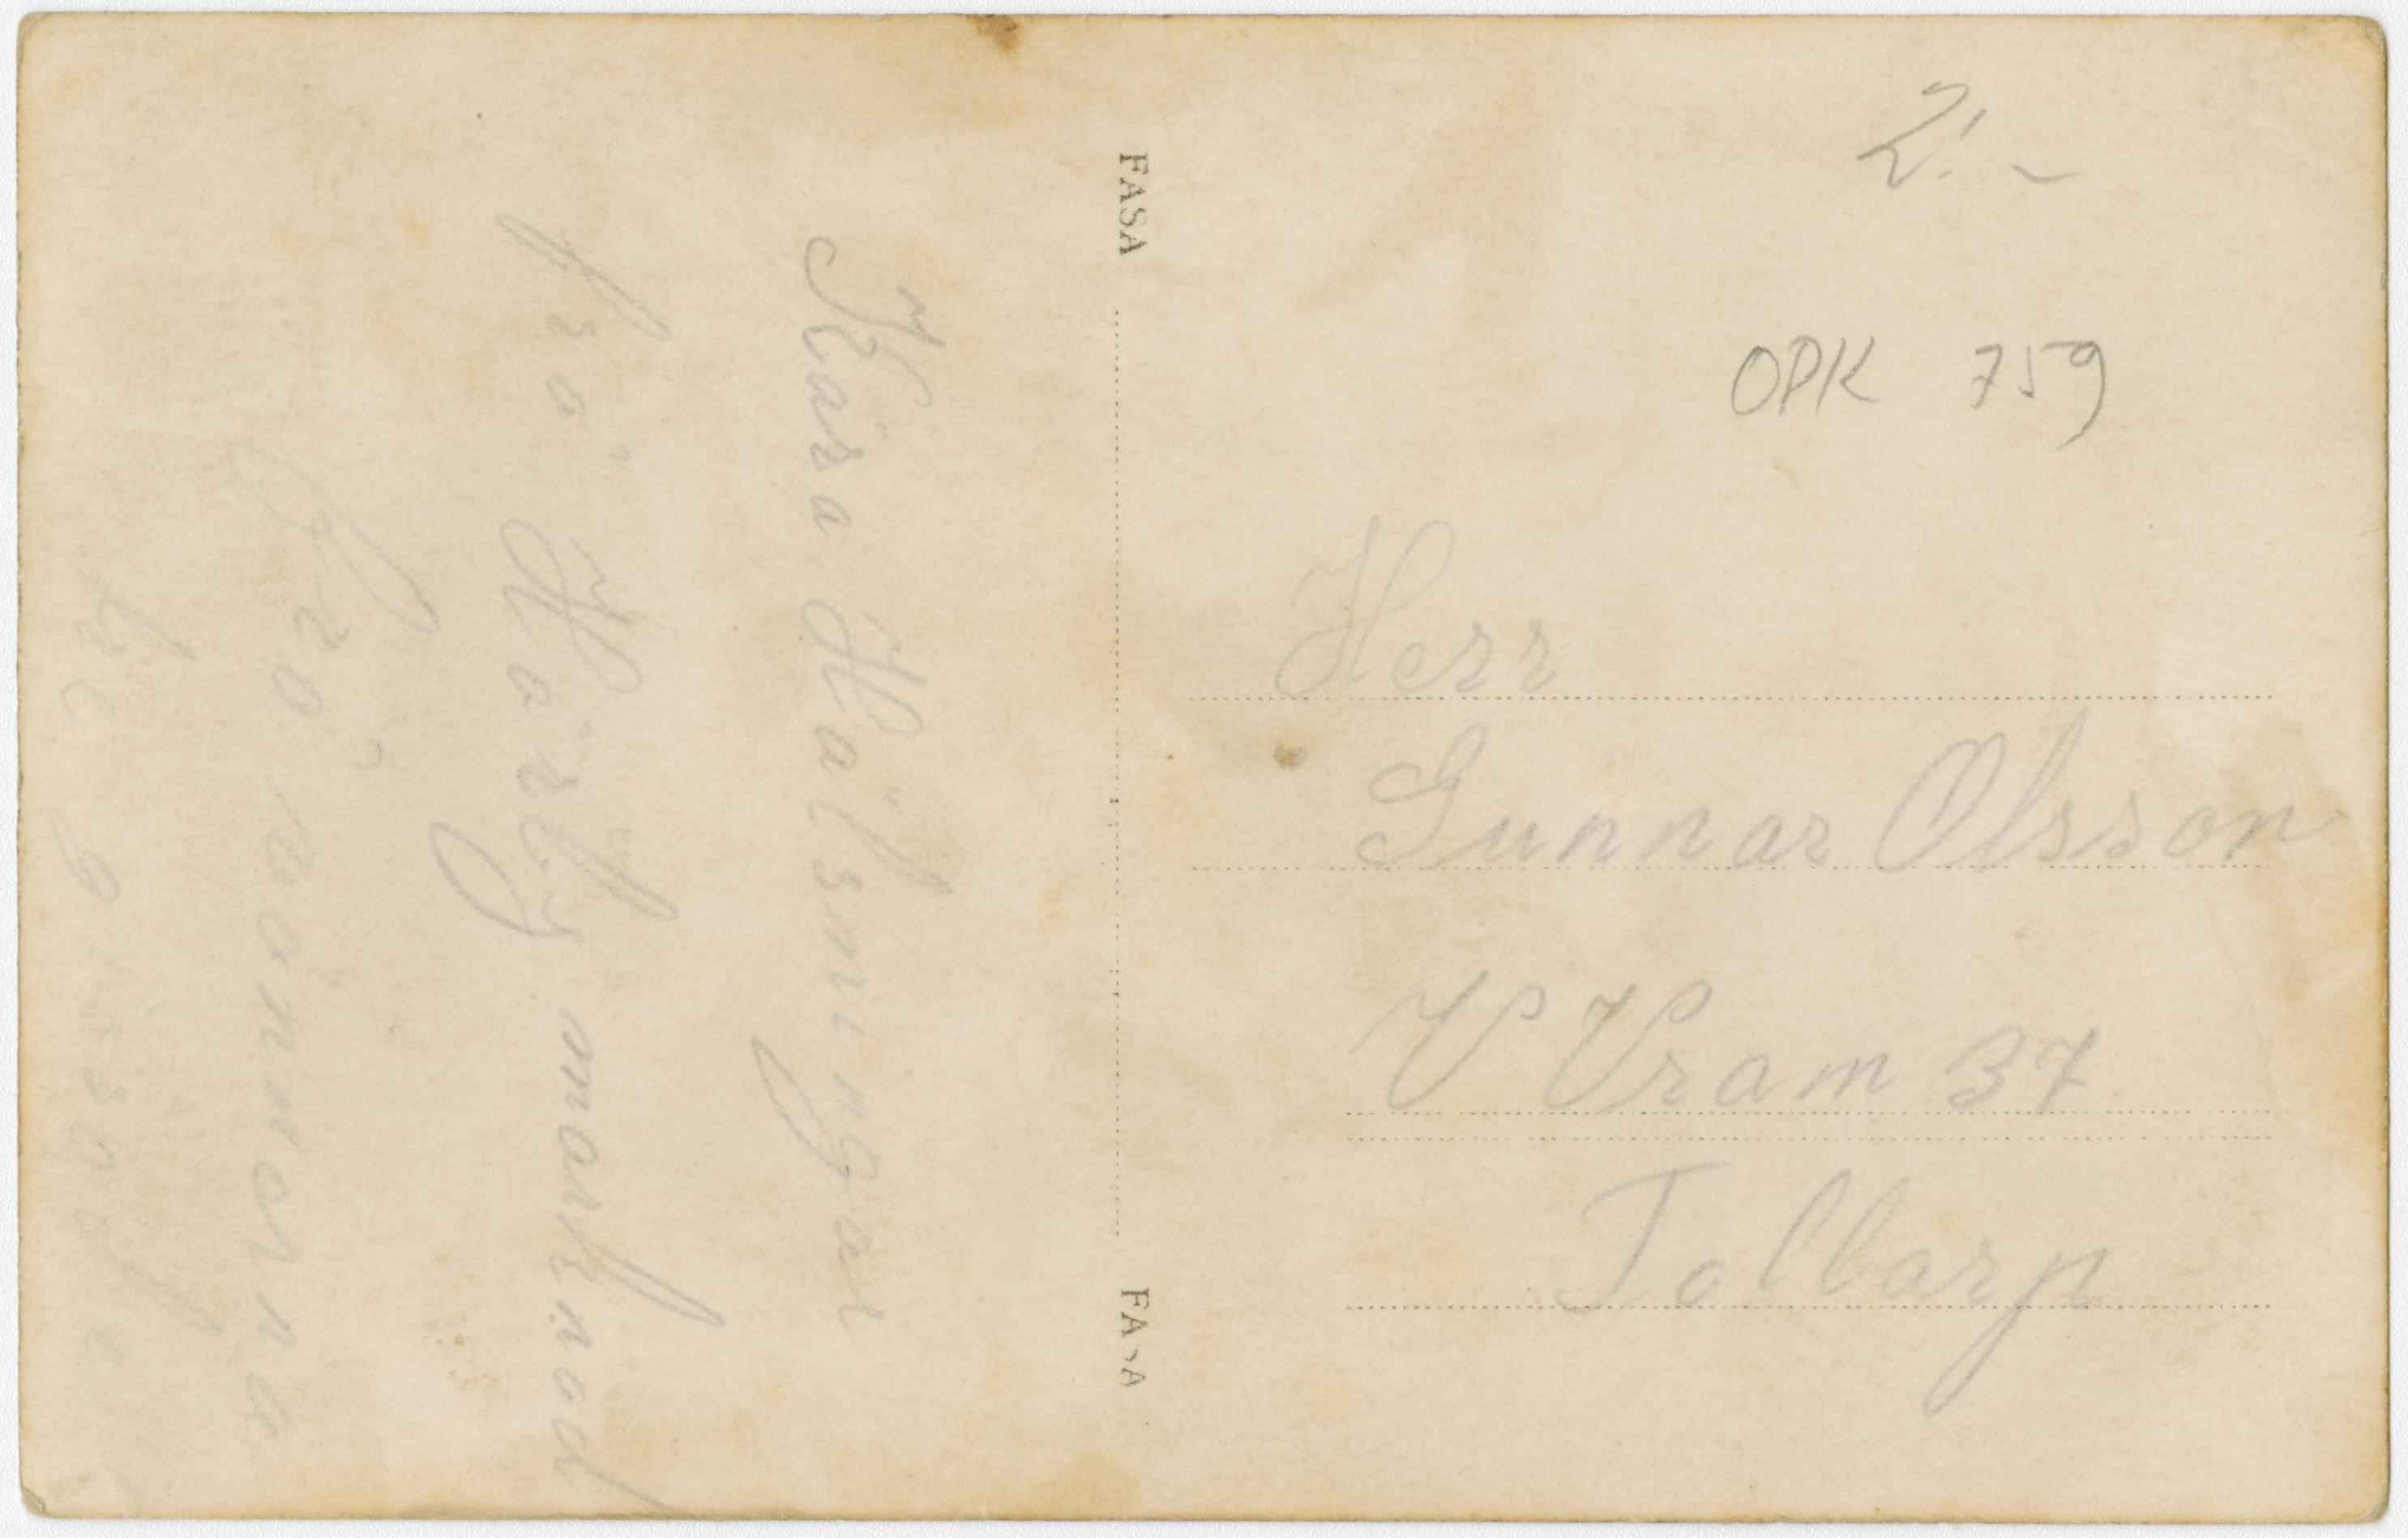 Kära Hälsningar
frå Hörby marknad
från
FASA
FASA
2:-
OPK 759
Herr
Gunnar Olsson
V Vram 37
Tollarp